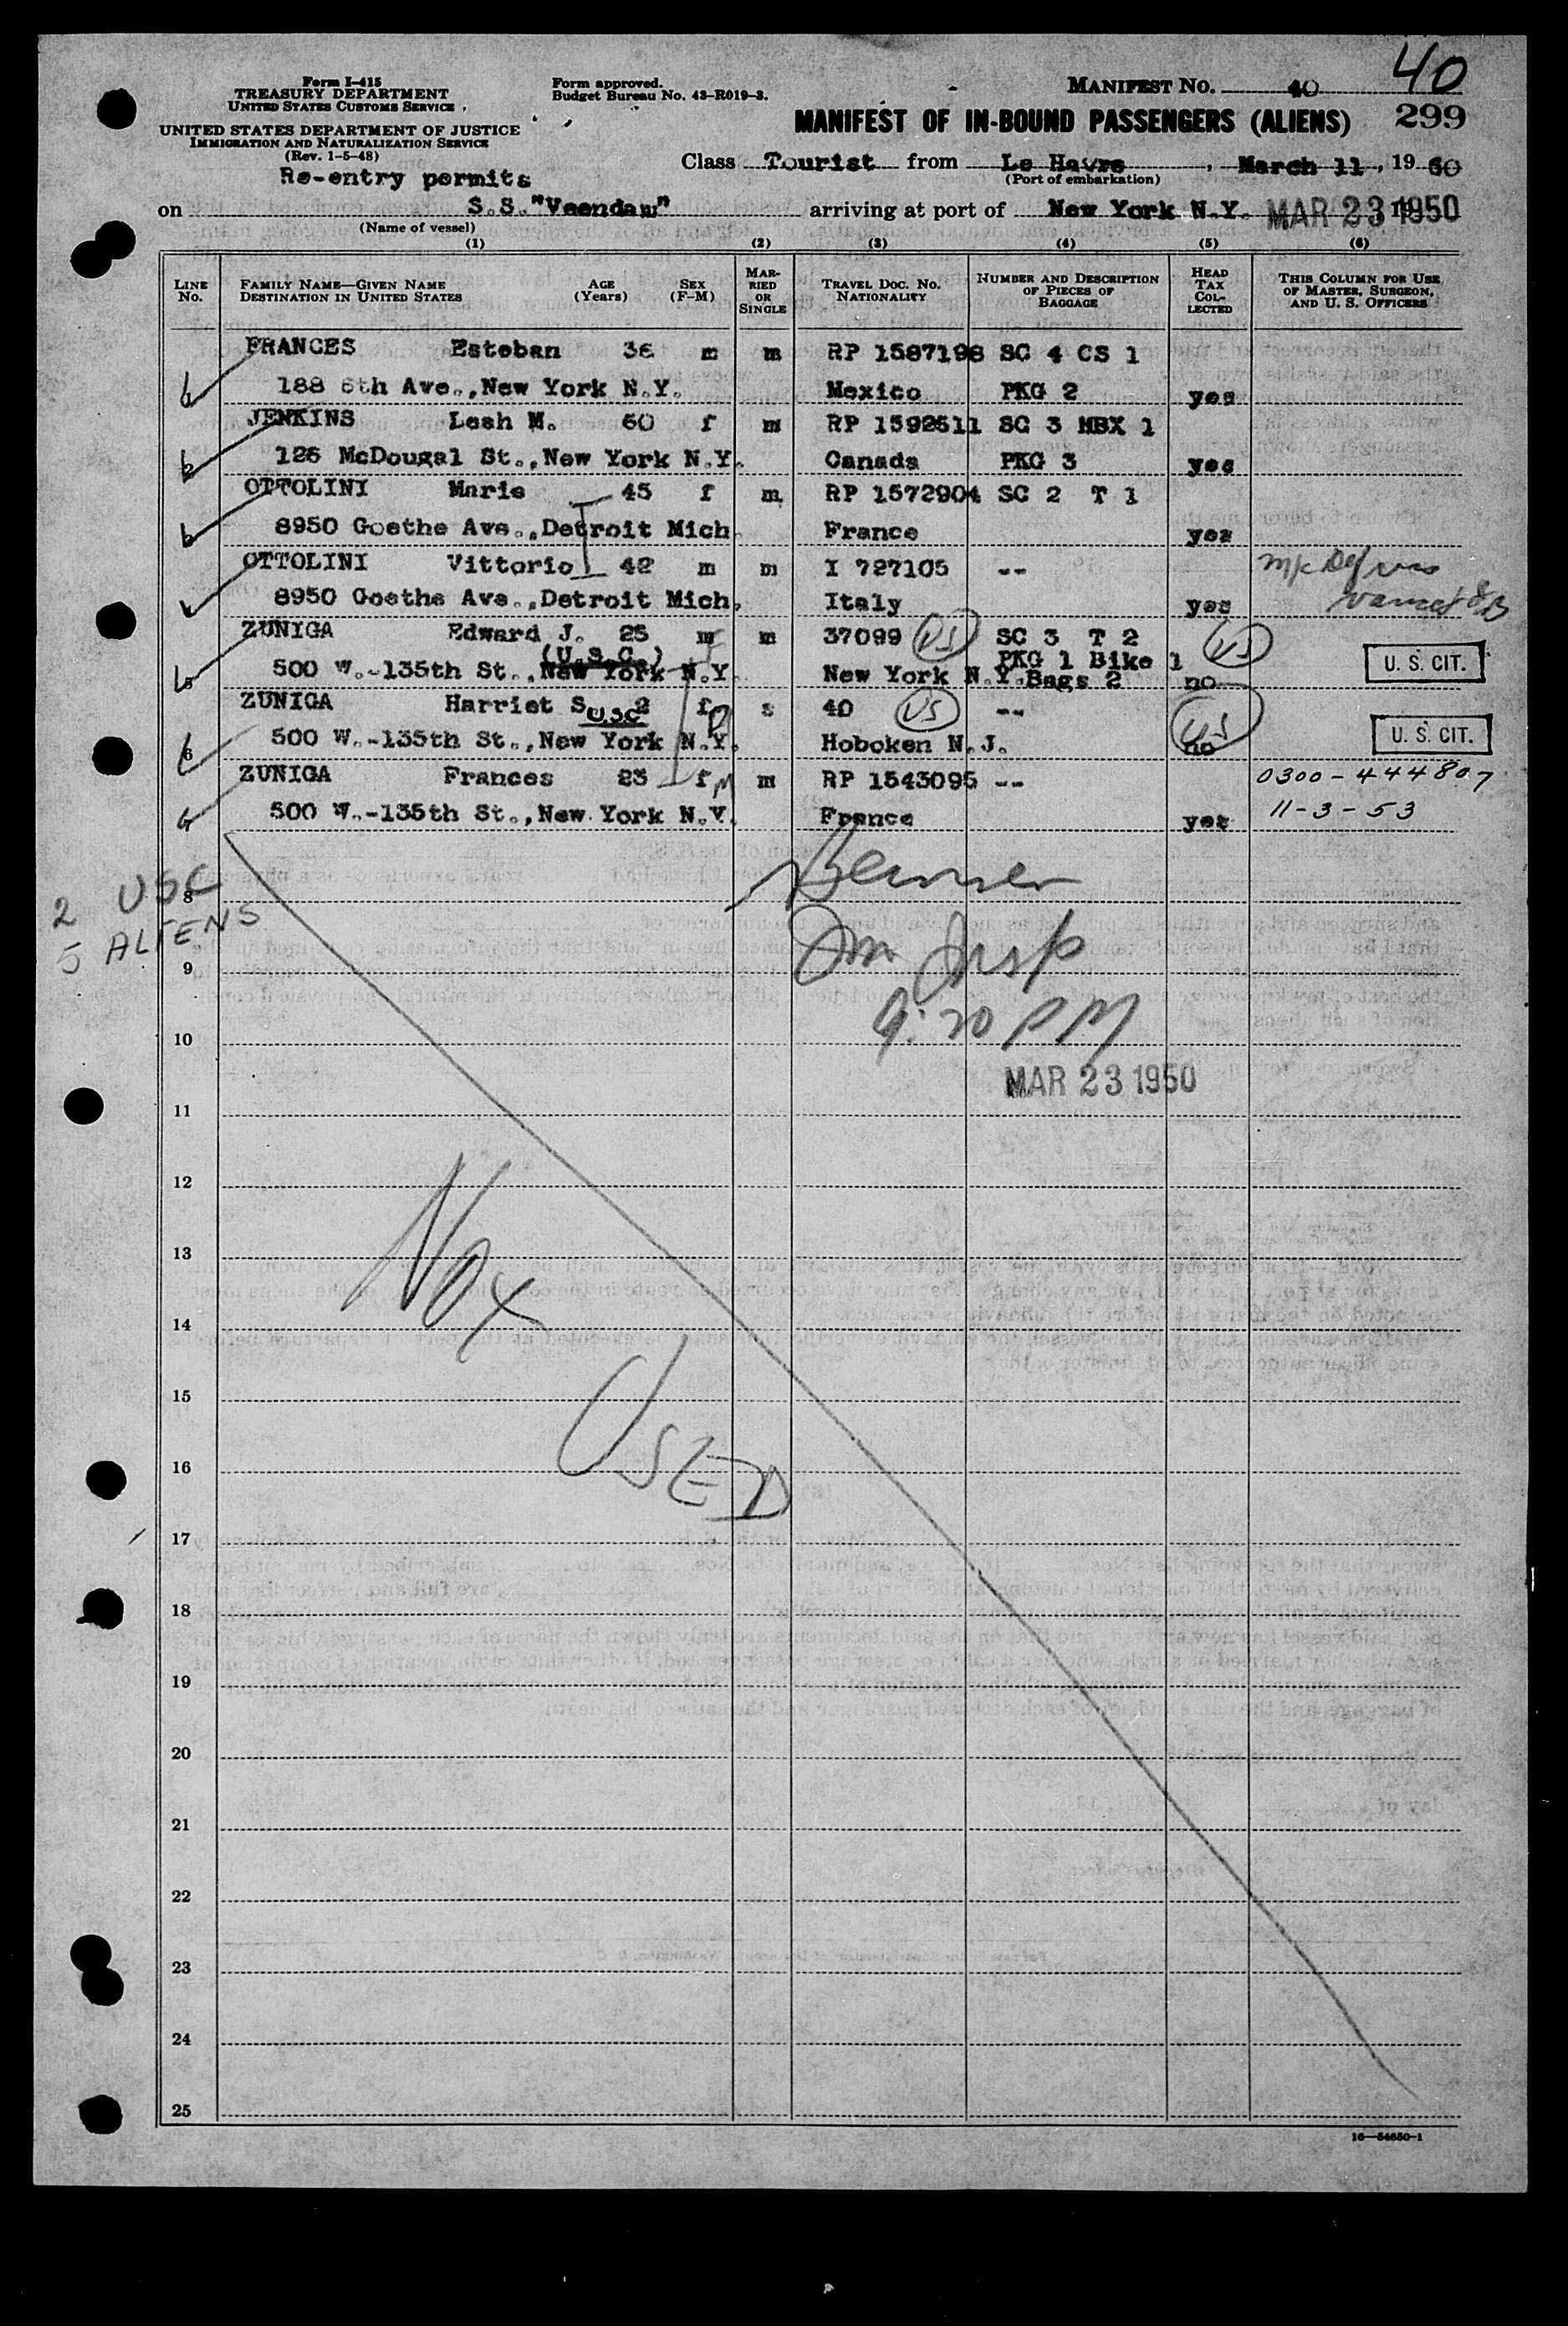 40
Form I-415
TREASURY DEPARTMENT
UNITED STATES CUSTOMS SERVICE
Form approved.
Budget Bureau No. 43-R019-3.
MANIFEST No. 40
UNITED STATES DEPARTMENT OF JUSTICE
IMMIGRATION AND NATURALIZATION SERVICE
(Rev. 1-5-48)
MANIFEST OF IN-BOUND PASSENGERS (ALIENS) 299
Re-entry permits
Class Tourist from Le Havre, March 11, 1950
(Port of embarkation)
on S.S."Veendam" arriving at port of New York N.Y. MAR 23 1950
(Name of vessel)
(1) (2) (3) (4) (5) (6)
LINE No. FAMILY NAME—GIVEN NAME DESTINATION IN UNITED STATES AGE (Years) SEX (F-M) MARRIED OR SINGLE TRAVEL DOC. NO. NATIONALITY NUMBER AND DESCRIPTION OF PIECES OF BAGGAGE HEAD TAX COLLECTED THIS COLUMN FOR USE OF MASTER, SURGEON, AND U. S. OFFICERS
FRANCES Esteban 36 m m RP 1587198 SC 4 CS 1
188 6th Ave., New York N.Y. Mexico PKG 2 yes
JENKINS Leah M. 60 f m RP 1592611 SC 3 HBX 1
126 McDougal St., New York N.Y. Canada PKG 3 yes
OTTOLINI Marie 45 f m RP 1572904 SC 2 T 1
8950 Goethe Ave., Detroit Mich. France yes
OTTOLINI Vittorio 42 m m I 727105 --
8950 Goethe Ave., Detroit Mich. Italy yes
ZUNIGA Edward J. 25 m m 37099 US SC 3 T 2 US
(U.S.C.) PKG 1 Bike 1 U. S. CIT.
5 500 W.-135th St., New York N.Y. New York N.Y. Bags 2 no
ZUNIGA Harriet S. USC 2 f s 40 US -- US
6 500 W.-135th St., New York N.Y. Hoboken N.J. no U. S. CIT.
ZUNIGA Frances 23 f m RP 1543095 -- 0300-444807
500 W.-135th St., New York N.Y. France yes 11-3-53
2 USC
5 ALIENS
8
Im Insp
9
9:20 PM
10
MAR 23 1950
11
12
13
Not
14
15
Used
16
17
18
19
20
21
22
23
24
25
16—54650-1